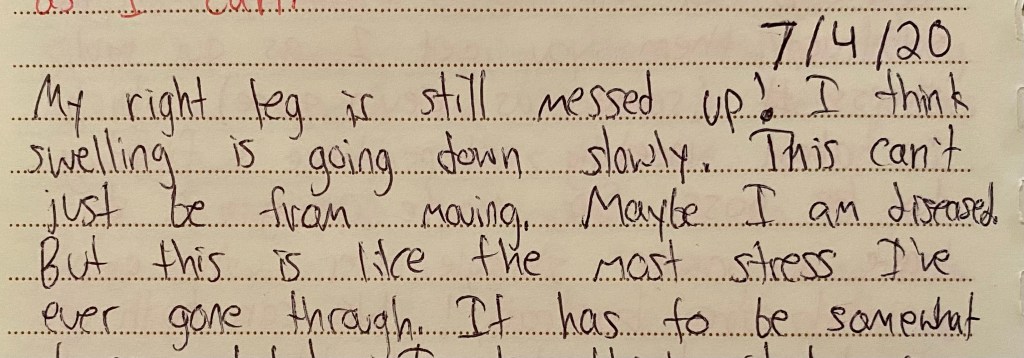 as I can!
7/4/20
My right leg is still messed up! I think
swelling is going down slowly. This can't
just be from moving. Maybe I am diseased.
But this is like the most stress I've
ever gone through. It has to be somewhat